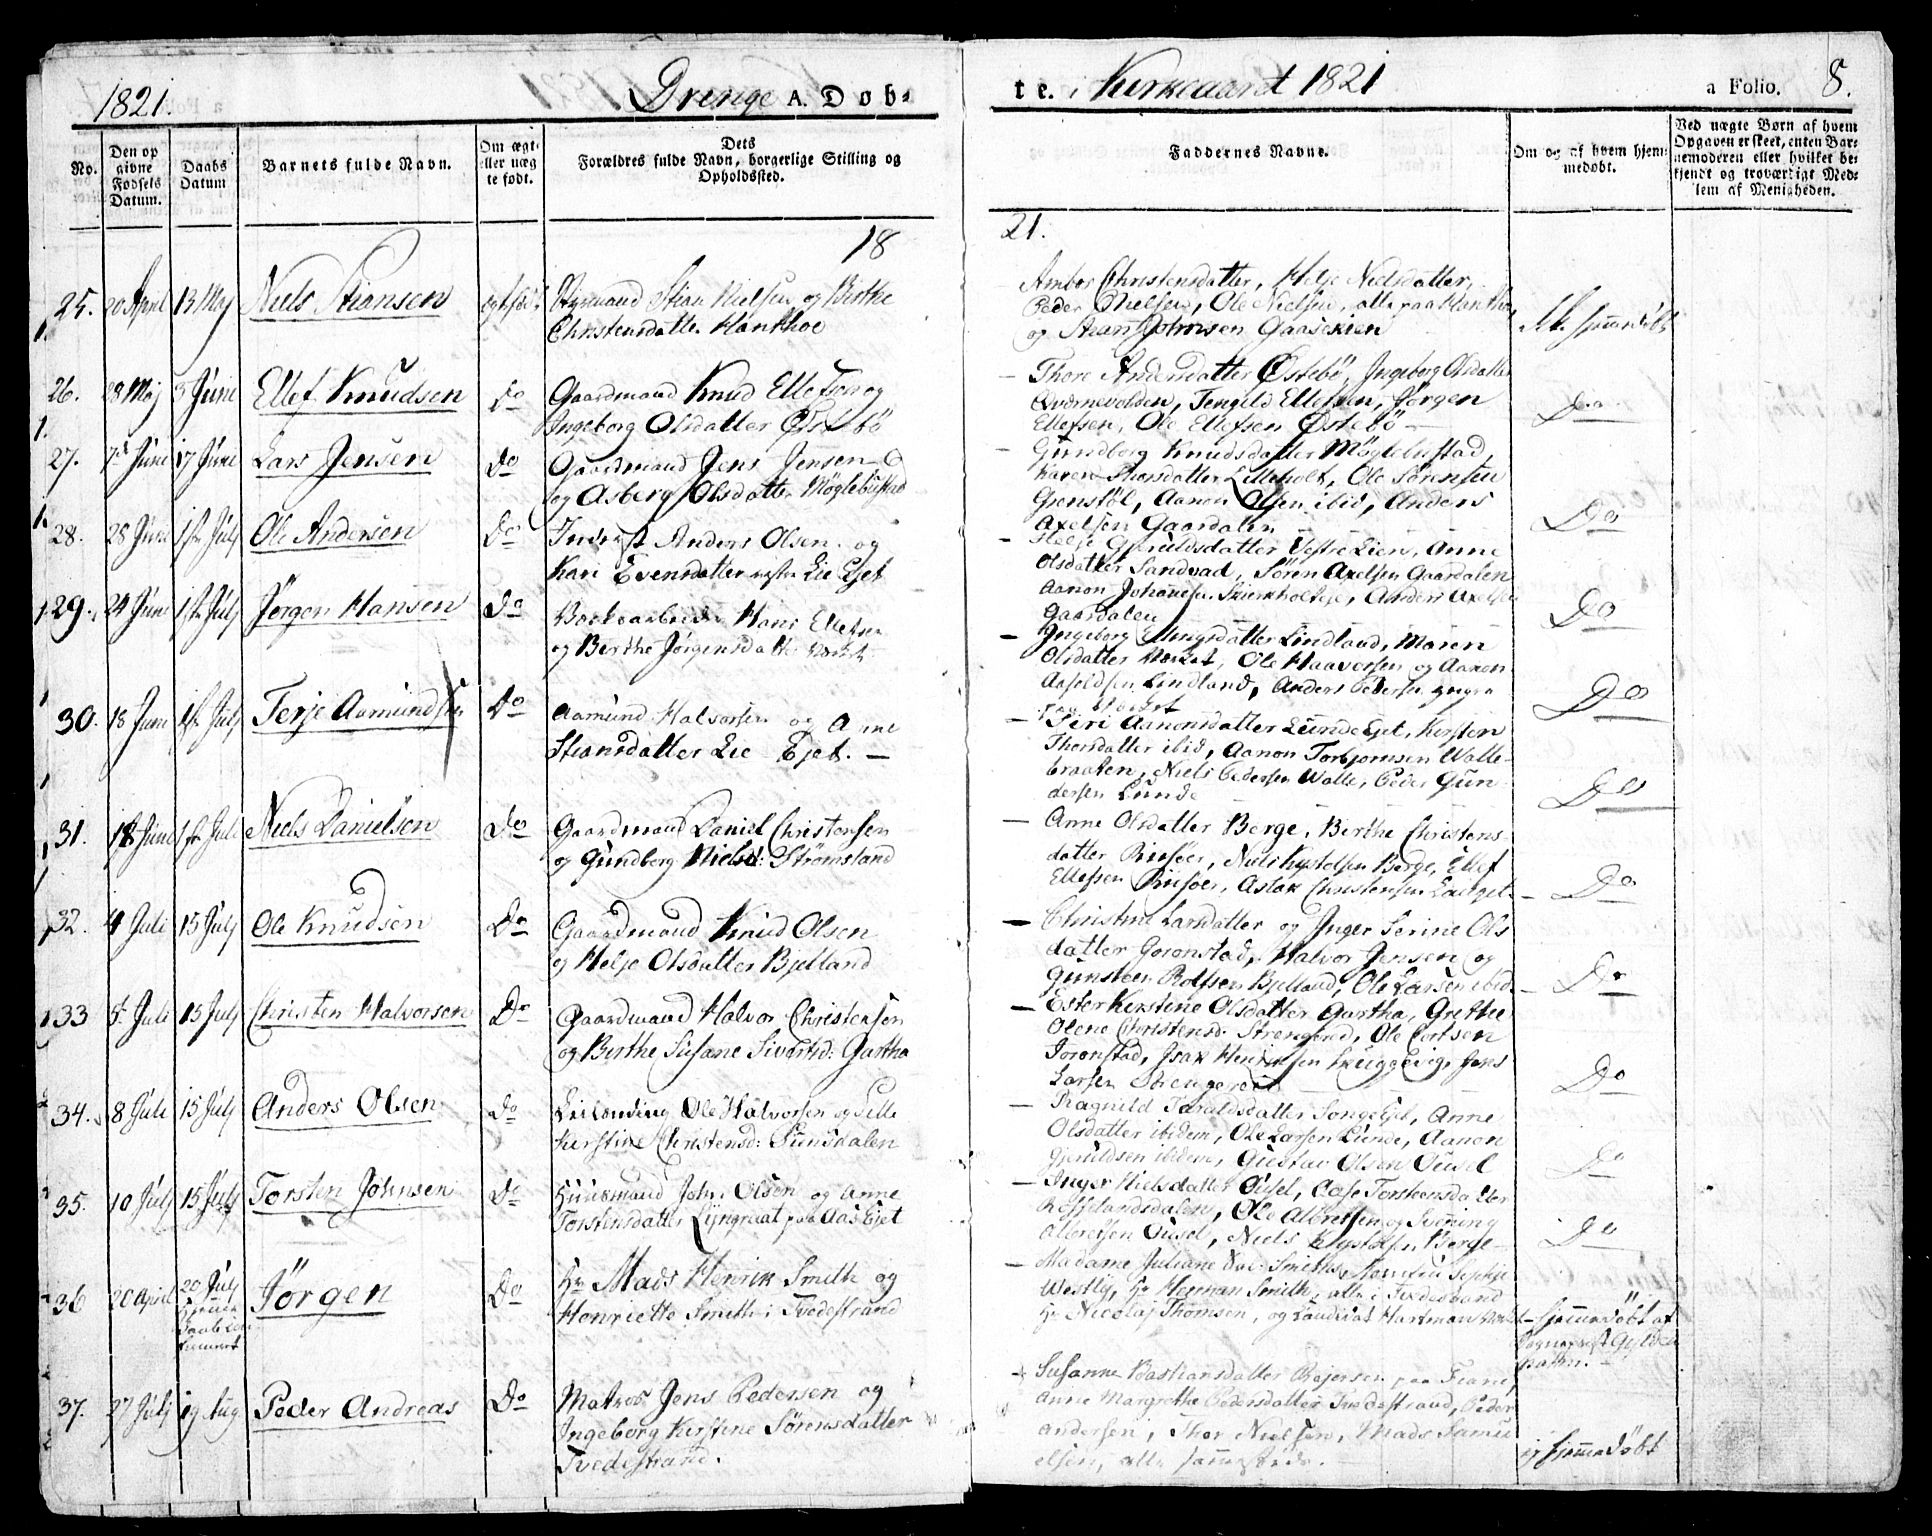 1821.
Drenge A. Døb-
te. i Kirkeaaret 1821
a Folio. 8.
No.
Den op
givne
Fødsels
Datum.
Daabs
Datum
Barnets fulde Navn.
Om ægte
eller uæg
te født.
Dets
Forældres fulde Navn, borgerlige Stilling og
Opholdssted.
Faddernes Navne.
Om og af hvem hjem
medøbt.
Ved uægte Børn af hvem
Opgaven er skeet, enten Bar-
nemoderen eller hvilket be-
kjendt og troværdigt Med-
lem af Menigheden.
18
21.
25. 20 April 13 Maj Niels Stiansen
Stian Nielsen og Berthe
Christensdatter Hankhoe
Christensdatter, Helje Nielsdatter,
Peder Nielsen, Ole Nielsen, alle paa Hankhoe
og Johnsen Gaaseskien
26. 28 Maj 3 Juni Ellef Knudsen Do
Gaardmand Knud Ellefsen og
Ingeborg Olsdatter Østebö
Thore Andersdatter Østebö, Ingeborg Olsdatter
Qværnevolden, Tengild Ellefsen, Jörgen
Ellefsen, Ole Ellefsen Østebö
Do
27. 7de Juni 17 Juni Lars Jensen Do
Gaardmand Jens Jensen
og Asberg Olsdatter Möglebustad
Gundborg Knudsdatter Möglebustad,
Karen Thorsdatter Lilleholt, Ole Sörensen
Grenstöl, Aanon Olsen ibid, Anders
Axelsen Gaardalen
Do
28. 28 Juni 1ste Julj Ole Andersen Do
Inderst Anders Olsen og
Kari Evensdatter vestre Lie Ejet
Helje Gjeruldsdatter Vestre Lien, Anne
Olsdatter Sandvad, Sören Axelsen Gaardalen
Aanon Johannesen, Anders Axelsen
Gaardalen
Do
29. 24 Juni 1ste Julj Jörgen Hansen Do
Hans Ellefsen
og Berthe Jörgensdatter
Ingeborg Ellingsdatter Lindland, Maren
Olsdatter Værket, Ole Haavorsen og Aanon
Lindland, Anders Pedersen
Do
30. 18 Juni 1ste Julj Terje Aamundsen Do
Aamund Halvorsen og Anne
Stiansdatter Lie Ejet. —
Siri Aanonsdatter Lunde Ejet, Kirsten
Thorsdatter ibid, Aanon Torbjornsen Walle-
braaten, Niels Pedersen Walle, Peder Gun-
dersen Lunde
Do
31. 18 Juni 1ste Juli Niels Danielsen Do
Gaardmand Daniel Christensen
og Gundborg Nielsd: Strömsland
Anne Olsdatter Berge, Berthe Christens-
datter, Niels Kystolsen Berge, Ellef
Ellefsen, Aslak Christensen
Do
32. 4 Juli 15 Julj Ole Knudsen Do
Gaardmand Knud Olsen
og Helje Olsdatter Bjelland
Christine Larsdatter og Inger Serine Ols
datter Goronstad, Halvor Jensen og
Gunsteen Rolfsen Bjelland, Ole Larsen ibid
Do
33 5. Juli 15 Julj Christen Halvorsen Do
Gaardmand Halvor Christensen
og Berthe Susane Sivertsd: Gartha
Ester Kirstine Olsdatter Gartha, Grethe
Olene Christensd: Strengered, Ole
Goronstad, Isak Henriksen Skuggevig, Jens
Larsen Strengereid
Do
34. 8 Juli 15 Julj Anders Olsen Do
Leilænding Ole Halvorsen og Sille
Kirstine Christensd: Sunsdalen
Ragnild Taraldsdatter Songe Ejet, Anne
Olsdatter ibidem, Ole Larsen Lunde, Aanon
Gjeruldsen ibidem, Gustav Olsen Ousel
Do
35. 10 Julj 15 Julj Torsten Johnsen Do
Huusmand John Olsen og Anne
Torstensdatter Lyngraat paa Aas Ejet
Inger Nielsdatter Ousel, Aase Torsteensdatter
Resselandsdalen, Ole Albretsen og Svenning
Albretsen Ousel, Niels Kystolsen Berge
Do
36 20 April 20 Julj Jörgen Do
Hr Mads Henrik Smith og
Henriette Smith i Tvedestrand
Madame Juliane Smith,
Westlig, Hr Herman Smith, alle i Tvedestrand
Hr Nicolaj Thomsen, og Hartman
hjemmedöbt af
37. 27 Julj 19 Aug Peder Andreas Do
Matros Jens Pedersen og
Ingeborg Kirstine Sörensdatter
Tvedestrand.
Susanne Bastiansdatter paa
Anne Margrethe Pedersdatter Tvedestrand, Peder
Andersen, Thor Nielsen, Mads Samu
elsen, alle sammesteds.
ej hjemmedöbt